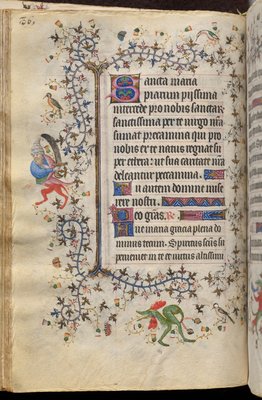 Sancta maria
piarum piissima
intercede pro nobis sanctar
sanctissima per te virgo nr̄a
sumat precamina qui pro
nobis ex te natus regnat su
per ethera: ut sua caritate nr̄a
deleantur peccamina.
Tu autem domine mise
rere nostri.
Deo gr̄as. R
Ave maria gracia plena do
minus tecum. Spiritus sc̄us su
perveniet in te et virtus altissimi